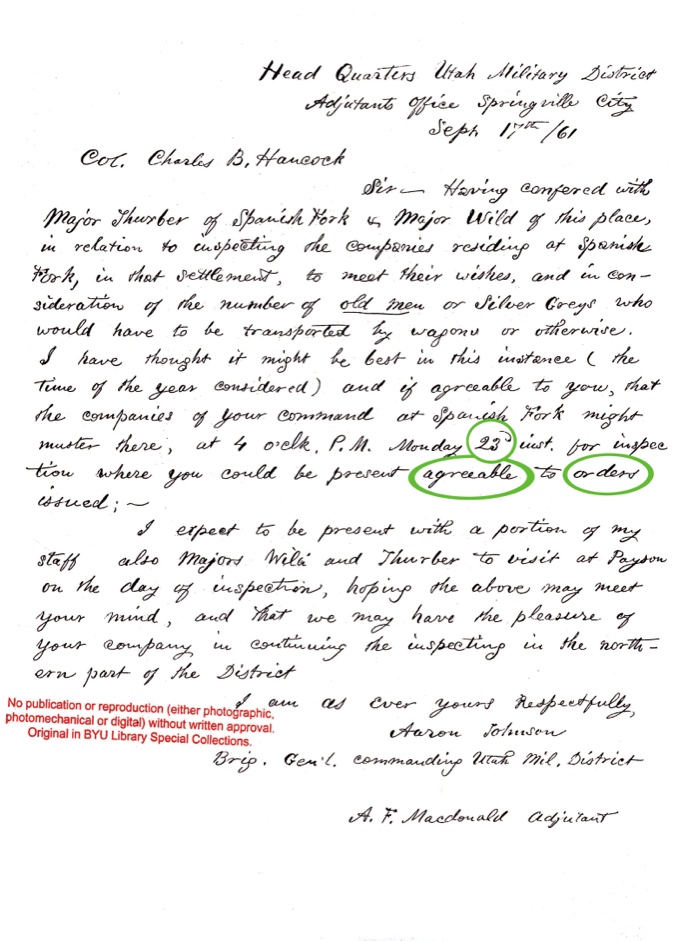 Head Quarters Utah Military District
Adjutants Office Springville City
Sept 17th /61
Col. Charles B, Hancock
Sir — Having confered with
Major Thurber of Spanish Fork & Major Wild of this place,
in relation to inspecting the companies residing at Spanish
Fork, in that settlement, to meet their wishes, and in con-
sideration of the number of old men or Silver Greys who
would have to be transported by wagons or otherwise.
I have thought it might be best in this instance ( the
time of the year considered) and if agreeable to you, that
the companies of your command at Spanish Fork might
muster there, at 4 o'clk, P.M. Monday 23d inst. for inspec
tion where you could be present agreeable to orders
issued; ~
I expect to be present with a portion of my
staff also Majors Wild and Thurber to visit at Payson
on the day of inspection, hoping the above may meet
your mind, and that we may have the pleasure of
your company in continuing the inspecting in the north-
ern part of the District
I am as ever yours Respectfully,
Aaron Johnson
Brig. Gen'l. commanding Utah Mil. District
A. F. Macdonald Adjutant
No publication or reproduction (either photographic,
photomechanical or digital) without written approval.
Original in BYU Library Special Collections.